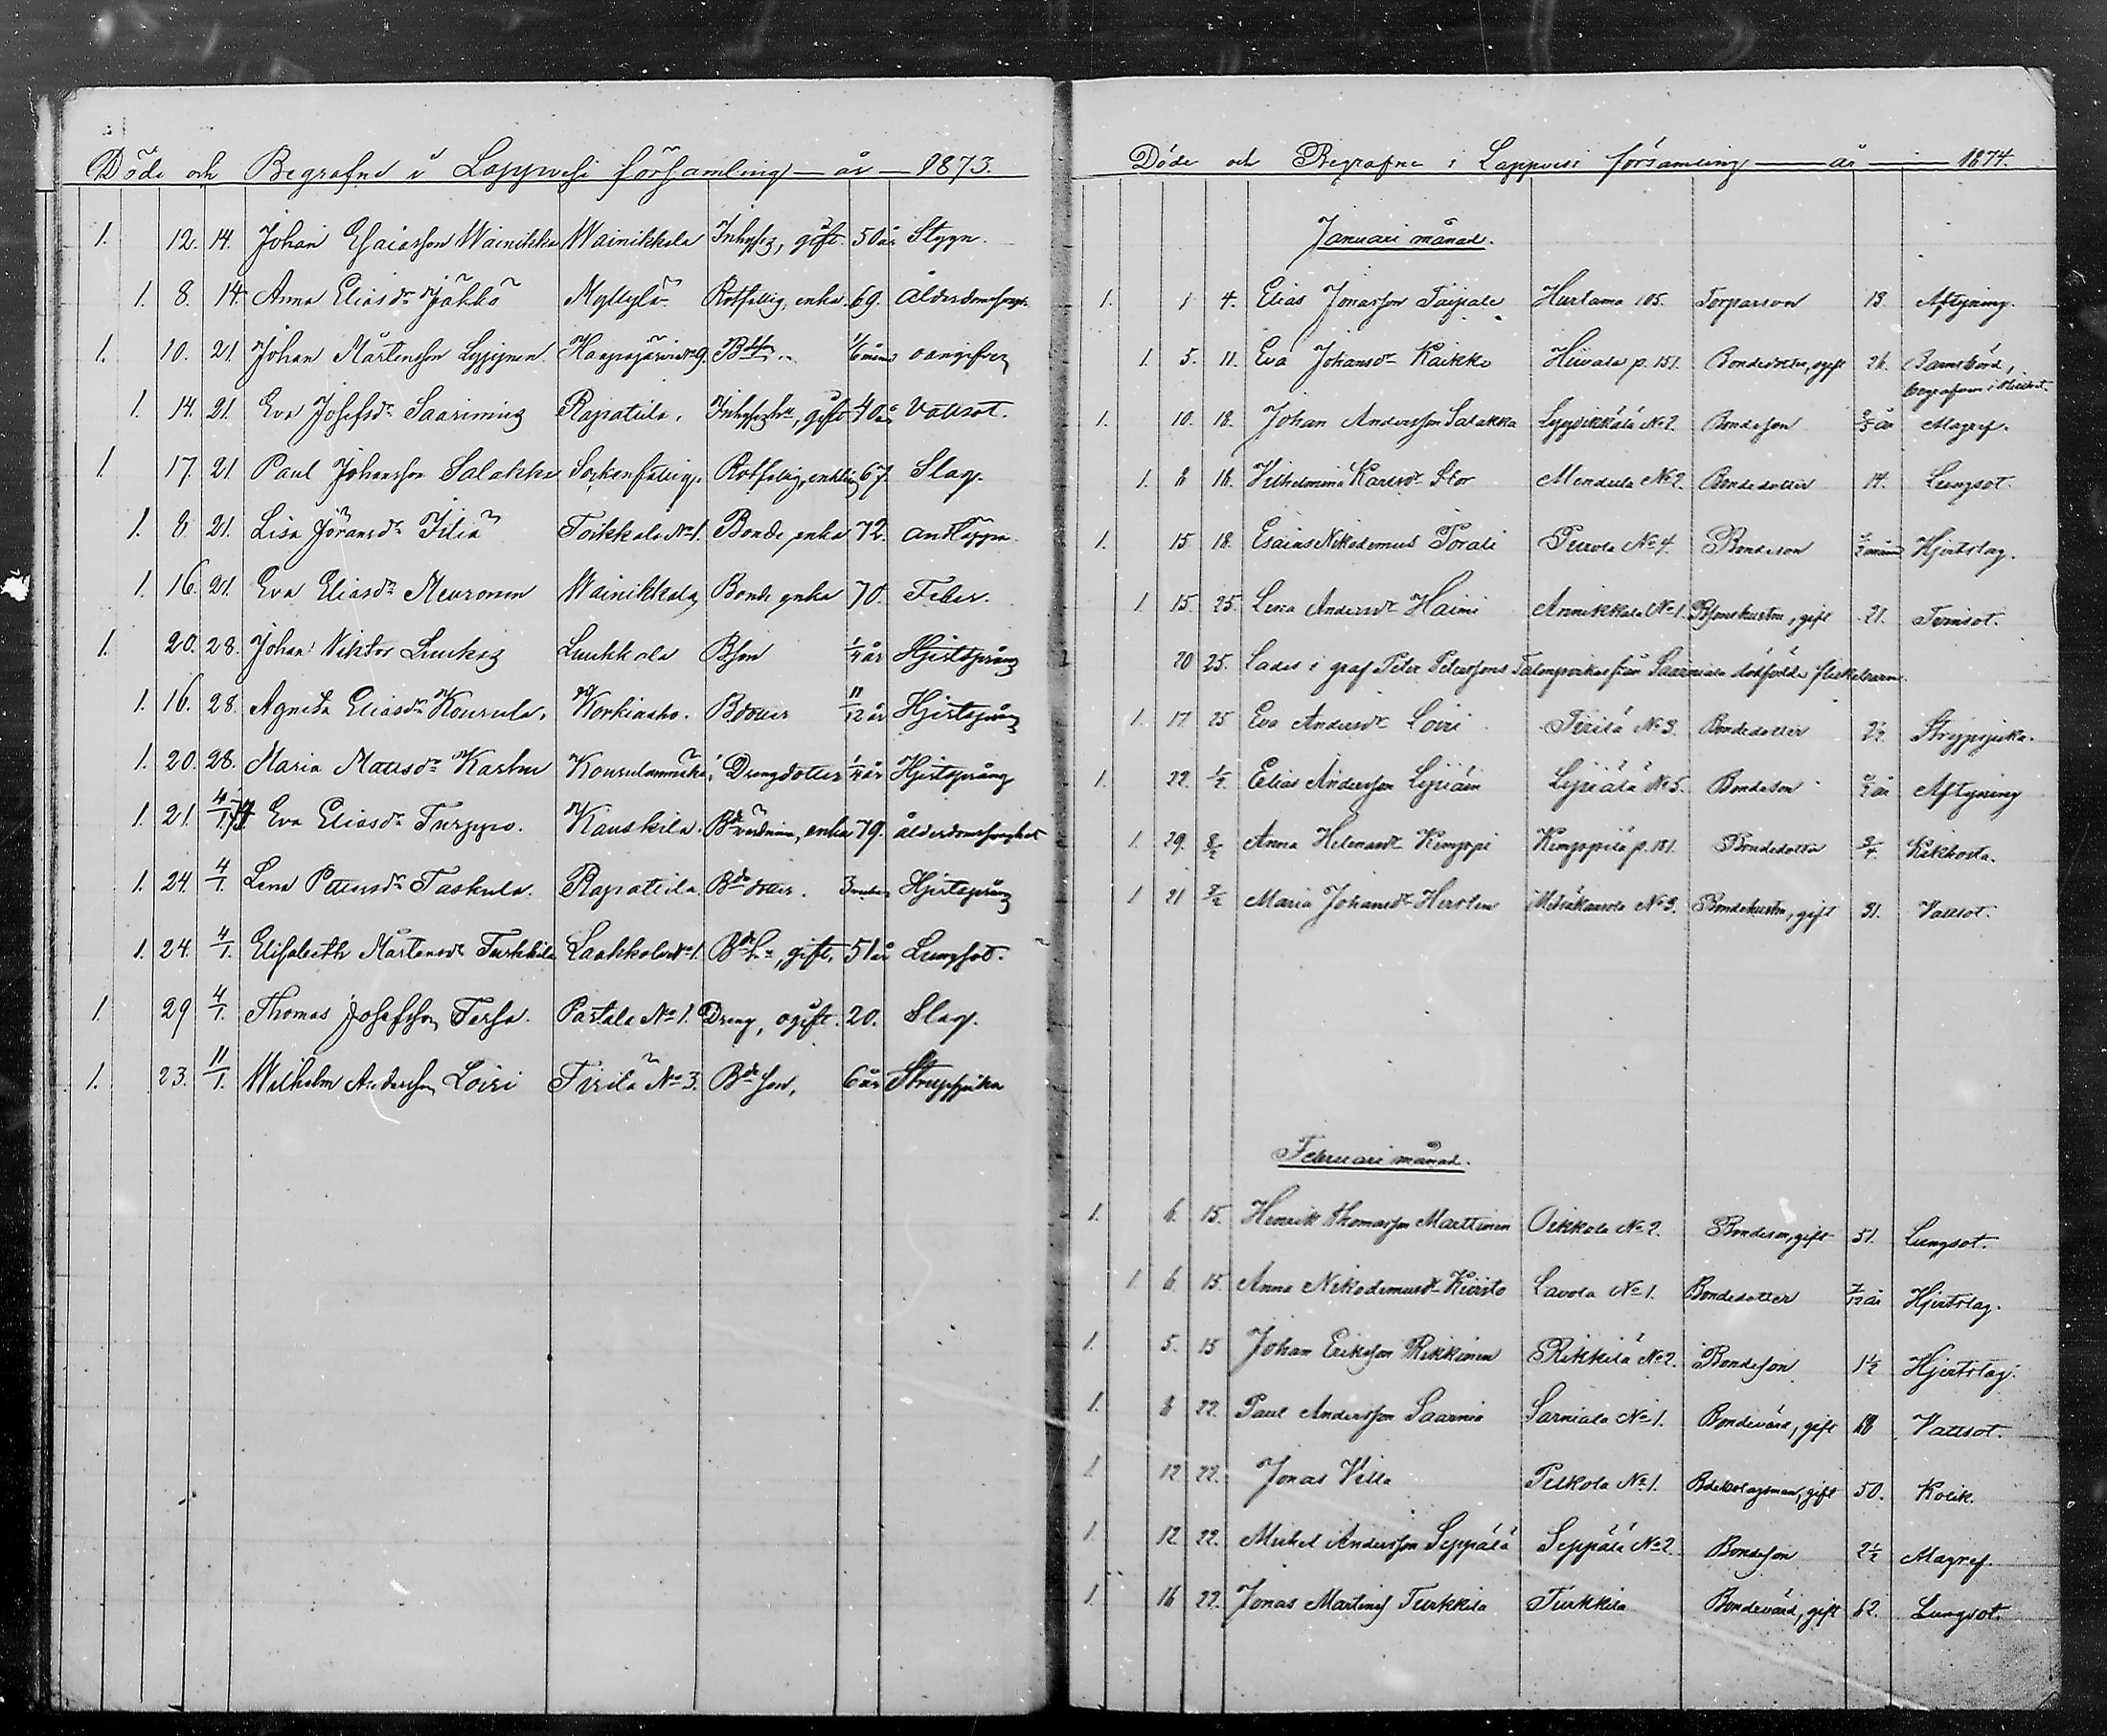 Döde och Begrafne i Lappvesi församling — år — 1873.
1. 12. 14. Johan Esaiasson Wainikka Wainikkala Inhysing, gift. 50 år Stygn.
1. 8. 14. Anna Eliasdr Jökkö Myllylä Rotfallig, enka. 69. Ålderdomssvagh.
1. 10. 21. Johan Mårtensson Lyyjynen Haapajärvi No 9. oangifven
1. 14. 21. Eva Josefsdr Saariming Rapatila. Inhysehu, gift 40 år Vattsot.
1. 17. 21 Paul Johansson Salakka Sockenfattig. Rotfallig, enkling 67. Slag.
1. 8. 21. Lisa Jöransdr Itiä Toikkala No 1. Bonde enka 72. andtäppa
1. 16. 21. Eva Eliasdr Meuronen Wainikkala Bonde enka 70. Feber.
1. 20. 28. Johan Viktor Luukig Luukkala Bson 1/4 år Hjertsprång
1. 16. 28. Agneta Eliasdr Kourula. Korkinaho. Bdotter 11/12 år Hjertsprång
1. 20. 28. Maria Mattsdr Karhu Drengdotter 1/4 år Hjertsprång
1. 21. 4/1 74 Eva Eliasdr Turppo. Kauskila. Bdevärdinna, enka 79. ålderdomssvaghet
1. 24. 4/1. Lena Pettersdr Taskula. Rapatila Bde dotter. 3 Hjertsprång
1. 24. 4/1. Elisabeth Mårtensdr Turkkila Laakkola No 1. Bdehu, gift. 51 år Lungsot.
1. 29 4/1. Thomas Josefsson Tersa. Partala No 1. Dreng, ogift. 20. Slag.
1. 23. 11/1. Wilhelm Andersson Loiri Tirilä No 3. Bde son, 6 år Strupsjuka
Döde och Begrafne i Lappvesi församling — år — 1874.
Januari månad.
1. 1 4. Elias Jonasson Taipale Hurtama 105. Torparson 13. Aftyning.
1. 5. 11. Eva Johansdr Kaikko Hiivala p. 151. Bondedotter, ogift 26. Barnsbörd,
begrafven i
1. 10. 18. Johan Andersson Salakka Lyysikkälä No 2. Bondeson 2/3 år Magref.
1. 8 18. Vilhelmina Karlsdr Stor Mendula No 2. Bondedotter 14. Lungsot.
1. 15. 18. Esaias Nikodemus Torali Purola No 4. Bondeson Hjertslag.
1. 15. 25. Lena Andersdr Haimi Annikkala No 1. Bsonshustru, gift 21. Tvinsot.
20 25. Lades i graf Peter Peterssons från Saarniala dödfödde flickebarn.
1. 17. 25 Eva Andersdr Loiri Tirilä No 3. Bondedotter 2 1/2. Strypsjuka.
1. 22. 1/2. Elias Andersson Lipiäin Lipiälä No 5. Bondeson Aftyning
1. 29. 8/2 Anna Helenasdr Kemppi Kemppilä p. 181. Bondedotter 3/4. Kikhosta.
1 21 8/2 Maria Johansdr Hersten Mitsäkansola No 3. Bondehustru, gift 31. Vattsot.
Februari månad.
1. 6. 15. Henrik Thomasson Marttinen Oikkola No 2. Bondeson, gift 51. Lungsot.
1. 6 15. Anna Nikodemusdr Kiiristo Lavola No 1. Bondedotter 7/12 år Hjertslag.
1. 5. 15 Johan Eriksson Rikkinen Rikkilä No 2. Bondeson 1 1/2 Hjertslag.
1. 8 22. Paul Andersson Saarnia Sarniala No 1. Bondevärd, gift 68 Vattsot.
1. 12 22. Jonas Villa Pelkola No 1. Bdebolagsman, gift 50. Kolik.
1. 12. 22. Mickel Andersson Seppälä Seppälä No 2. Bondeson 2 1/2 Magref.
1. 16 22. Jonas Martinss Turkkila Turkkila Bondevärd, gift 62. Lungsot.